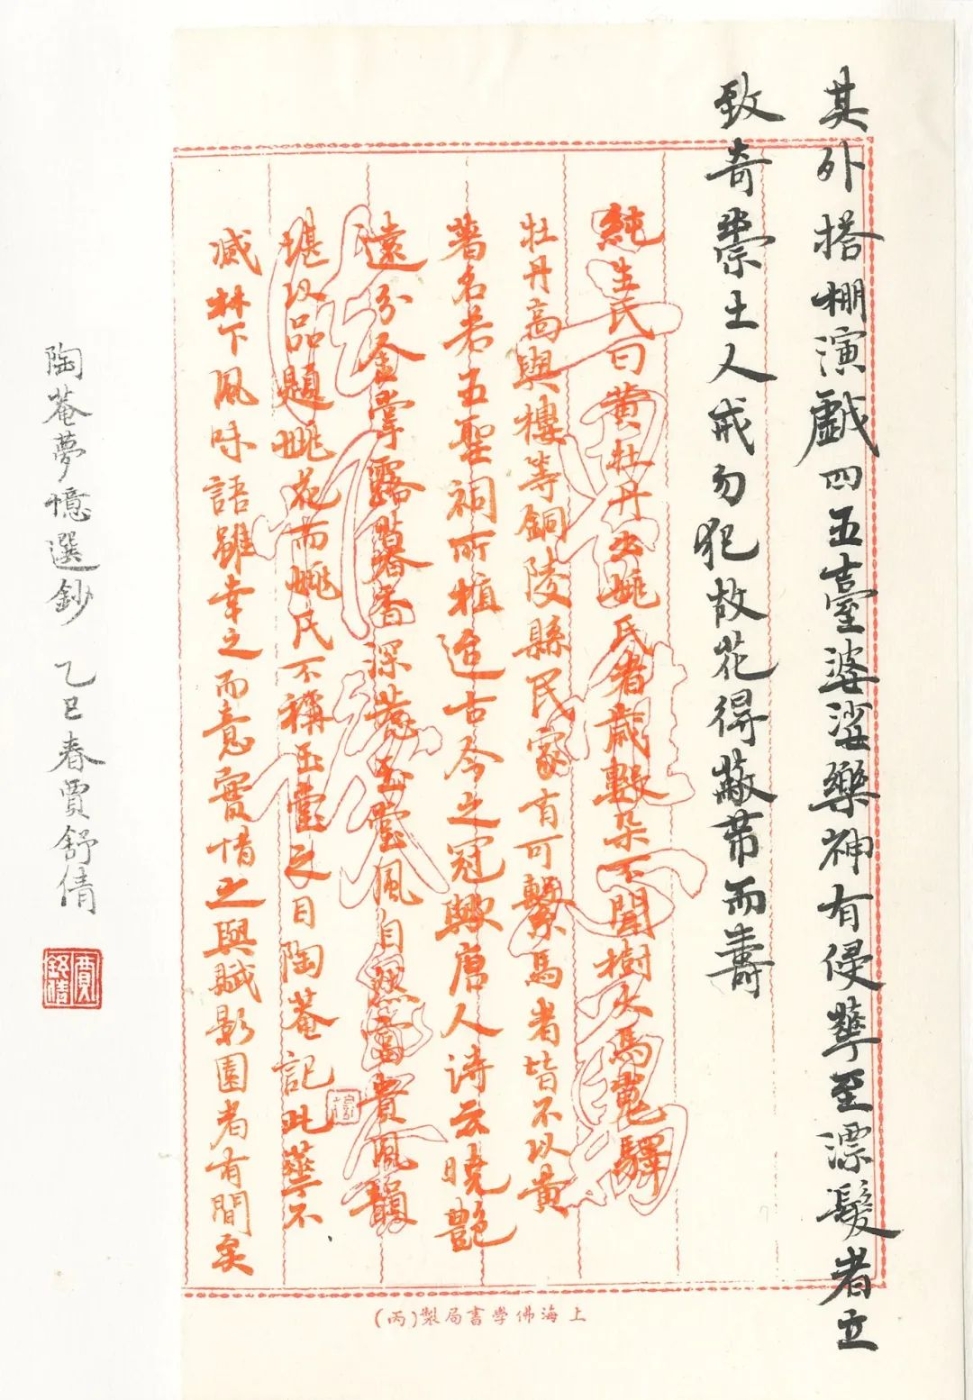 其外搭棚演戲四五臺婆娑樂神有侵蕐至漂髮者立
致奇祟土人戒勿犯故花得蔽芾而壽
純生氏曰黃牡丹出姚氏者歲數朵不聞樹大馬嵬驛
牡丹高與樓等銅陵縣民家有可繫馬者皆不以黃
著名若五聖祠所植迨古今之冠歟唐人詩云曉艷
遠分金掌露暮香深惹玉堂風自然富貴風韻
堪以品題姚花而姚氏不稱玉堂之目陶菴記此蕐不
減林下風味語雖幸之而意實惜之與賦影園者有間矣
陶菴夢憶選鈔 乙巳春賈舒倩
賈舒倩
上海佛學書局製(丙)